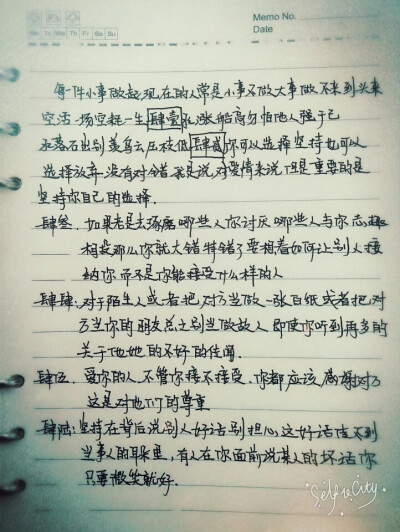 Memo No.
Date
Mo Tu We Th Fr Sa Su
每一件小事做起现在的人常是小事不做大事做不来到头来
空活一场空耗一生肆壹水涨船高勿怕他人强于己
水落石出别羡身云压枝低肆贰你可以选择坚持也可以
选择放弃没有对错我是说对爱情来说但是重要的是
坚持你自己的选择.
肆叁.如果老是去琢磨哪些人你讨厌哪些人与你志趣
相投那么你就大错特错了要想着如何让别人接
纳你而不是你能接受什么样的人
肆肆:对于陌生人或者把对方当做一张白纸或者把对
方当你的朋友总之别当做敌人即使你听到再多的
关于他她的不好的传闻.
肆伍.爱你的人不管你接不接受,你都应该感谢对方
这是对他们的尊重
肆陆:坚持在背后说别人好话别担心这好话传不到
当事人的耳朵里,有人在你面前说某人的坏话你
只要微笑就好.
Self to City